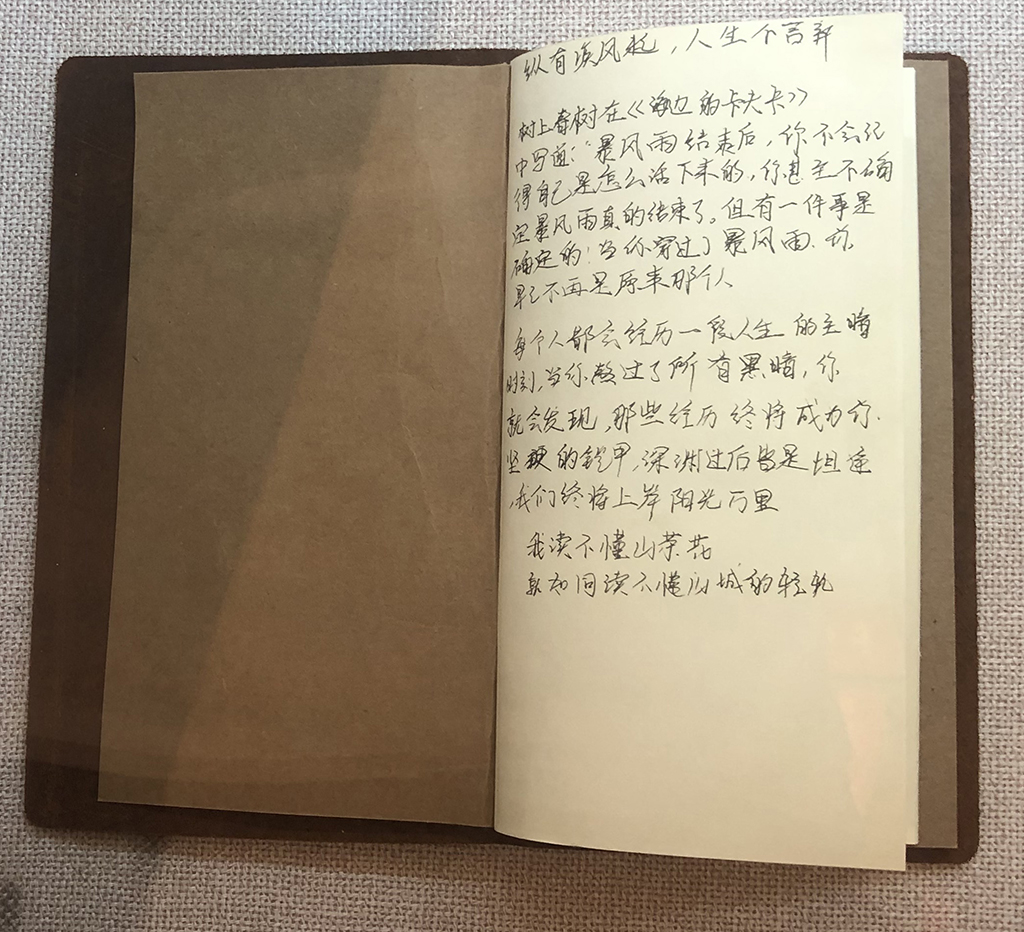 纵有疾风起，人生不言弃
村上春树在《海边的卡夫卡》
中写道："暴风雨结束后，你不会记
得自己是怎么活下来的，你甚至不确
定暴风雨真的结束了。但有一件事是
确定的：当你穿过了暴风雨，你
早已不再是原来那个人
每个人都会经历一段人生的至暗
时刻，当你熬过了所有黑暗，你
就会发现，那些经历终将成为你
坚硬的铠甲，深渊过后皆是坦途
，我们终将上岸阳光万里
我读不懂山茶花
就如同读不懂山城的